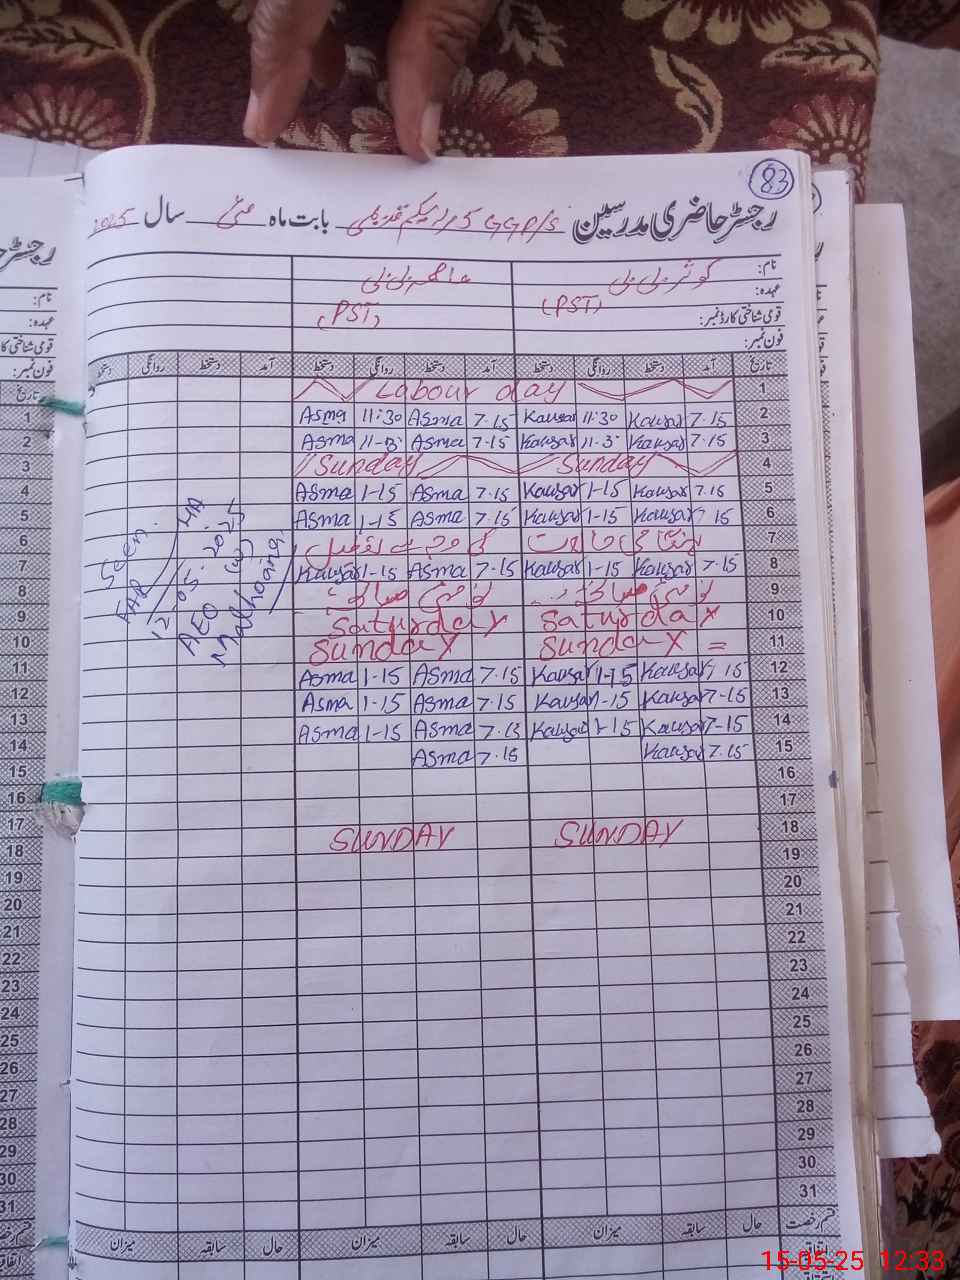 83
رجسٹر حاضری مدرسین GGP/S بابت ماہ مئی سال 2025
نام: کوثر بی بی عاصمہ بی بی
عہدہ: (PST) (PST)
قومی شناختی کارڈ نمبر:
فون نمبر:
تاریخ آمد دستخط روانگی دستخط آمد دستخط روانگی دستخط آمد دستخط روانگی
1 Labour day
2 7.15 Kausar 11:30 Kausar 7.15 Asma 11:30 Asma
3 7.15 Kausar 11-3 Kausar 7.15 Asma 11-3 Asma
4 Sunday Sunday
5 7.15 Kausar 1-15 Kausar 7.15 Asma 1-15 Asma
6 7 15 Kausar 1-15 Kausar 7.15 Asma 1-15 Asma
7 کی وجہ سے تعطیل
8 7.15 Kausar 1-15 Kausar 7.15 Asma 1-15 Kausar
9
10 Saturday Saturday
11 Sunday = Sunday
12 7.15 Kausar 1-15 Kausar 7.15 Asma 1-15 Asma
13 7-15 Kausar 1-15 Kausar 7.15 Asma 1-15 Asma
14 7-15 Kausar 1-15 Kausar 7.15 Asma 1-15 Asma
15 7.15 Kausar 7.15 Asma
16
17
18 SUNDAY SUNDAY
19
20
21
22
23
24
25
26
27
28
29
30
31
قسم رخصت حال سابقہ میزان حال سابقہ میزان حال سابقہ میزان
اتفاقیہ
Seen
12.05.2025
AEO (W)
رجسٹر
نام:
عہدہ:
قومی شناختی کا
فون نمبر:
تاریخ
1
2
3
4
5
6
7
8
9
10
11
12
13
14
15
16
17
18
19
20
21
22
23
24
25
26
27
28
29
30
31
قسم رخصت
15-05-25 12:33